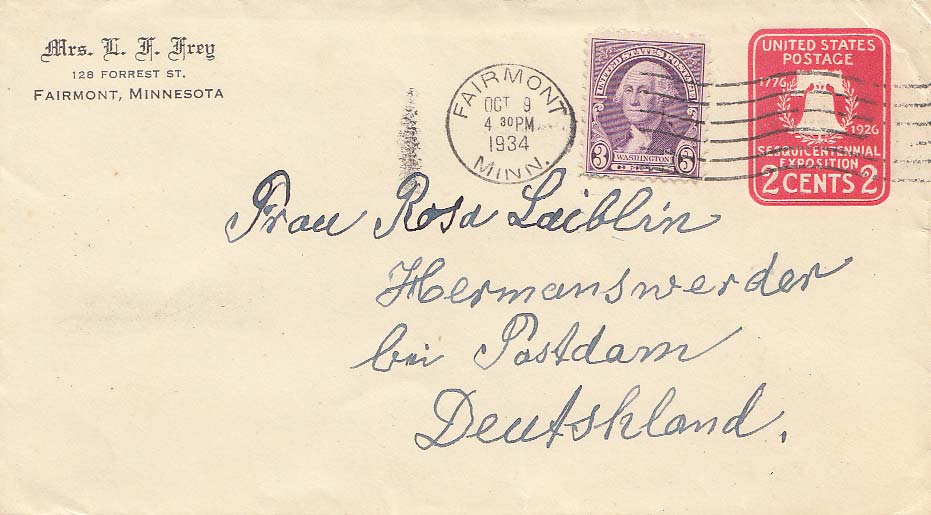 Mrs. L. F. Frey
128 FORREST ST.
FAIRMONT, MINNESOTA
FAIRMONT
OCT 9
4 30 PM
1934
MINN.
UNITED STATES POSTAGE
3 WASHINGTON 3
UNITED STATES
POSTAGE
1776
1926
SESQUICENTENNIAL
EXPOSITION
2 CENTS 2
Frau Rosa Laiblin
Hermanswerder
bei Postdam
Deutshland.